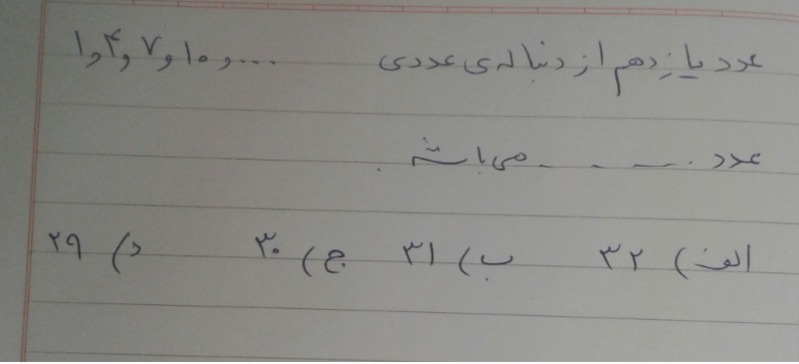 عدد یازدهم از دنباله‌ی عددی ۱و۴و۷و۱۰و...
عدد ........ می باشد.
الف) ۳۲ ب) ۳۱ ج) ۳۰ د) ۲۹